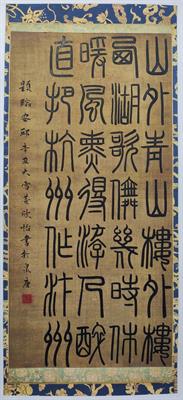 山外青山樓外樓
西湖歌儛幾時休
暖風熏得游人醉
直把杭州作汴州
題臨安邸辛丑大雪